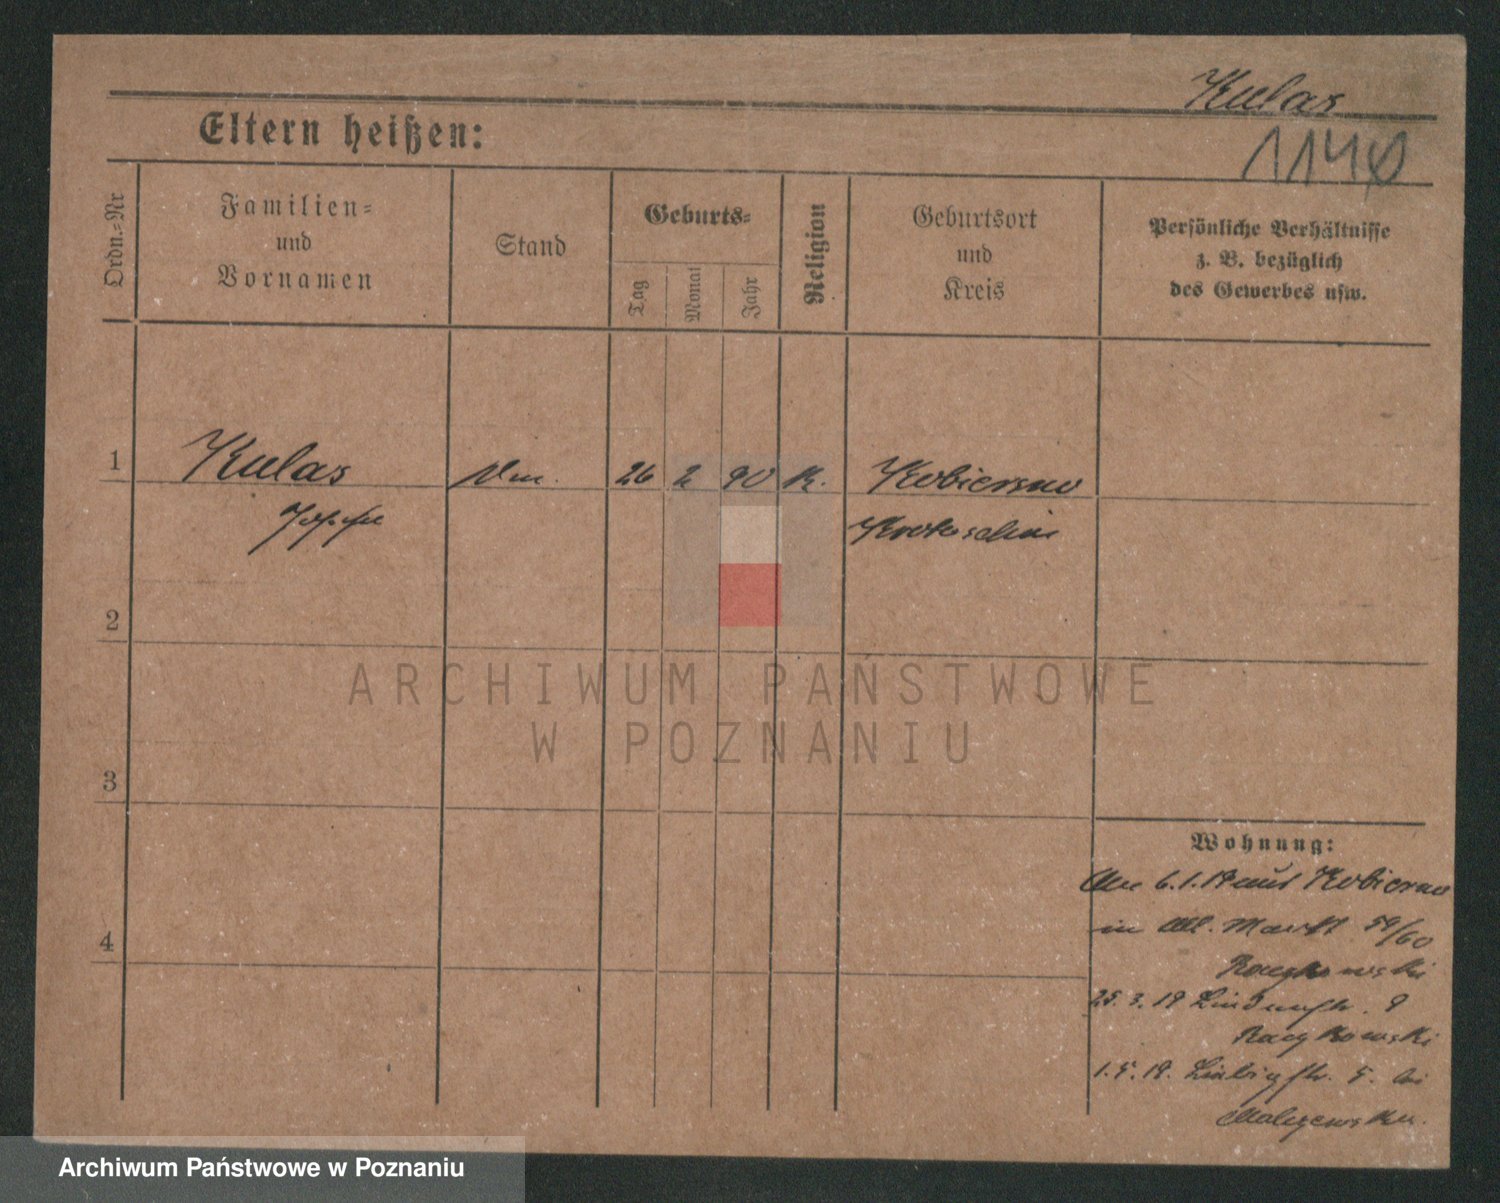 Kulas
1140
Eltern heißen:
Ordn.-Nr
Familien-
und
Vornamen
Stand
Geburts-
Tag
Monat
Jahr
Religion
Geburtsort
und
Kreis
Persönliche Verhältnisse
z. B. bezüglich
des Gewerbes usw.
1 Kulas 26 2 90 K. Kobierno
Krotoschin
2
3
4
Wohnung:
6.1.19 aus Kobierno
in Alt. Markt 59/60
25.3.19 Lindenstr. 9
Raczkowski
1.5.19. Liebigstr. 5. bei
ARCHIWUM PAŃSTWOWE
W POZNANIU
Archiwum Państwowe w Poznaniu